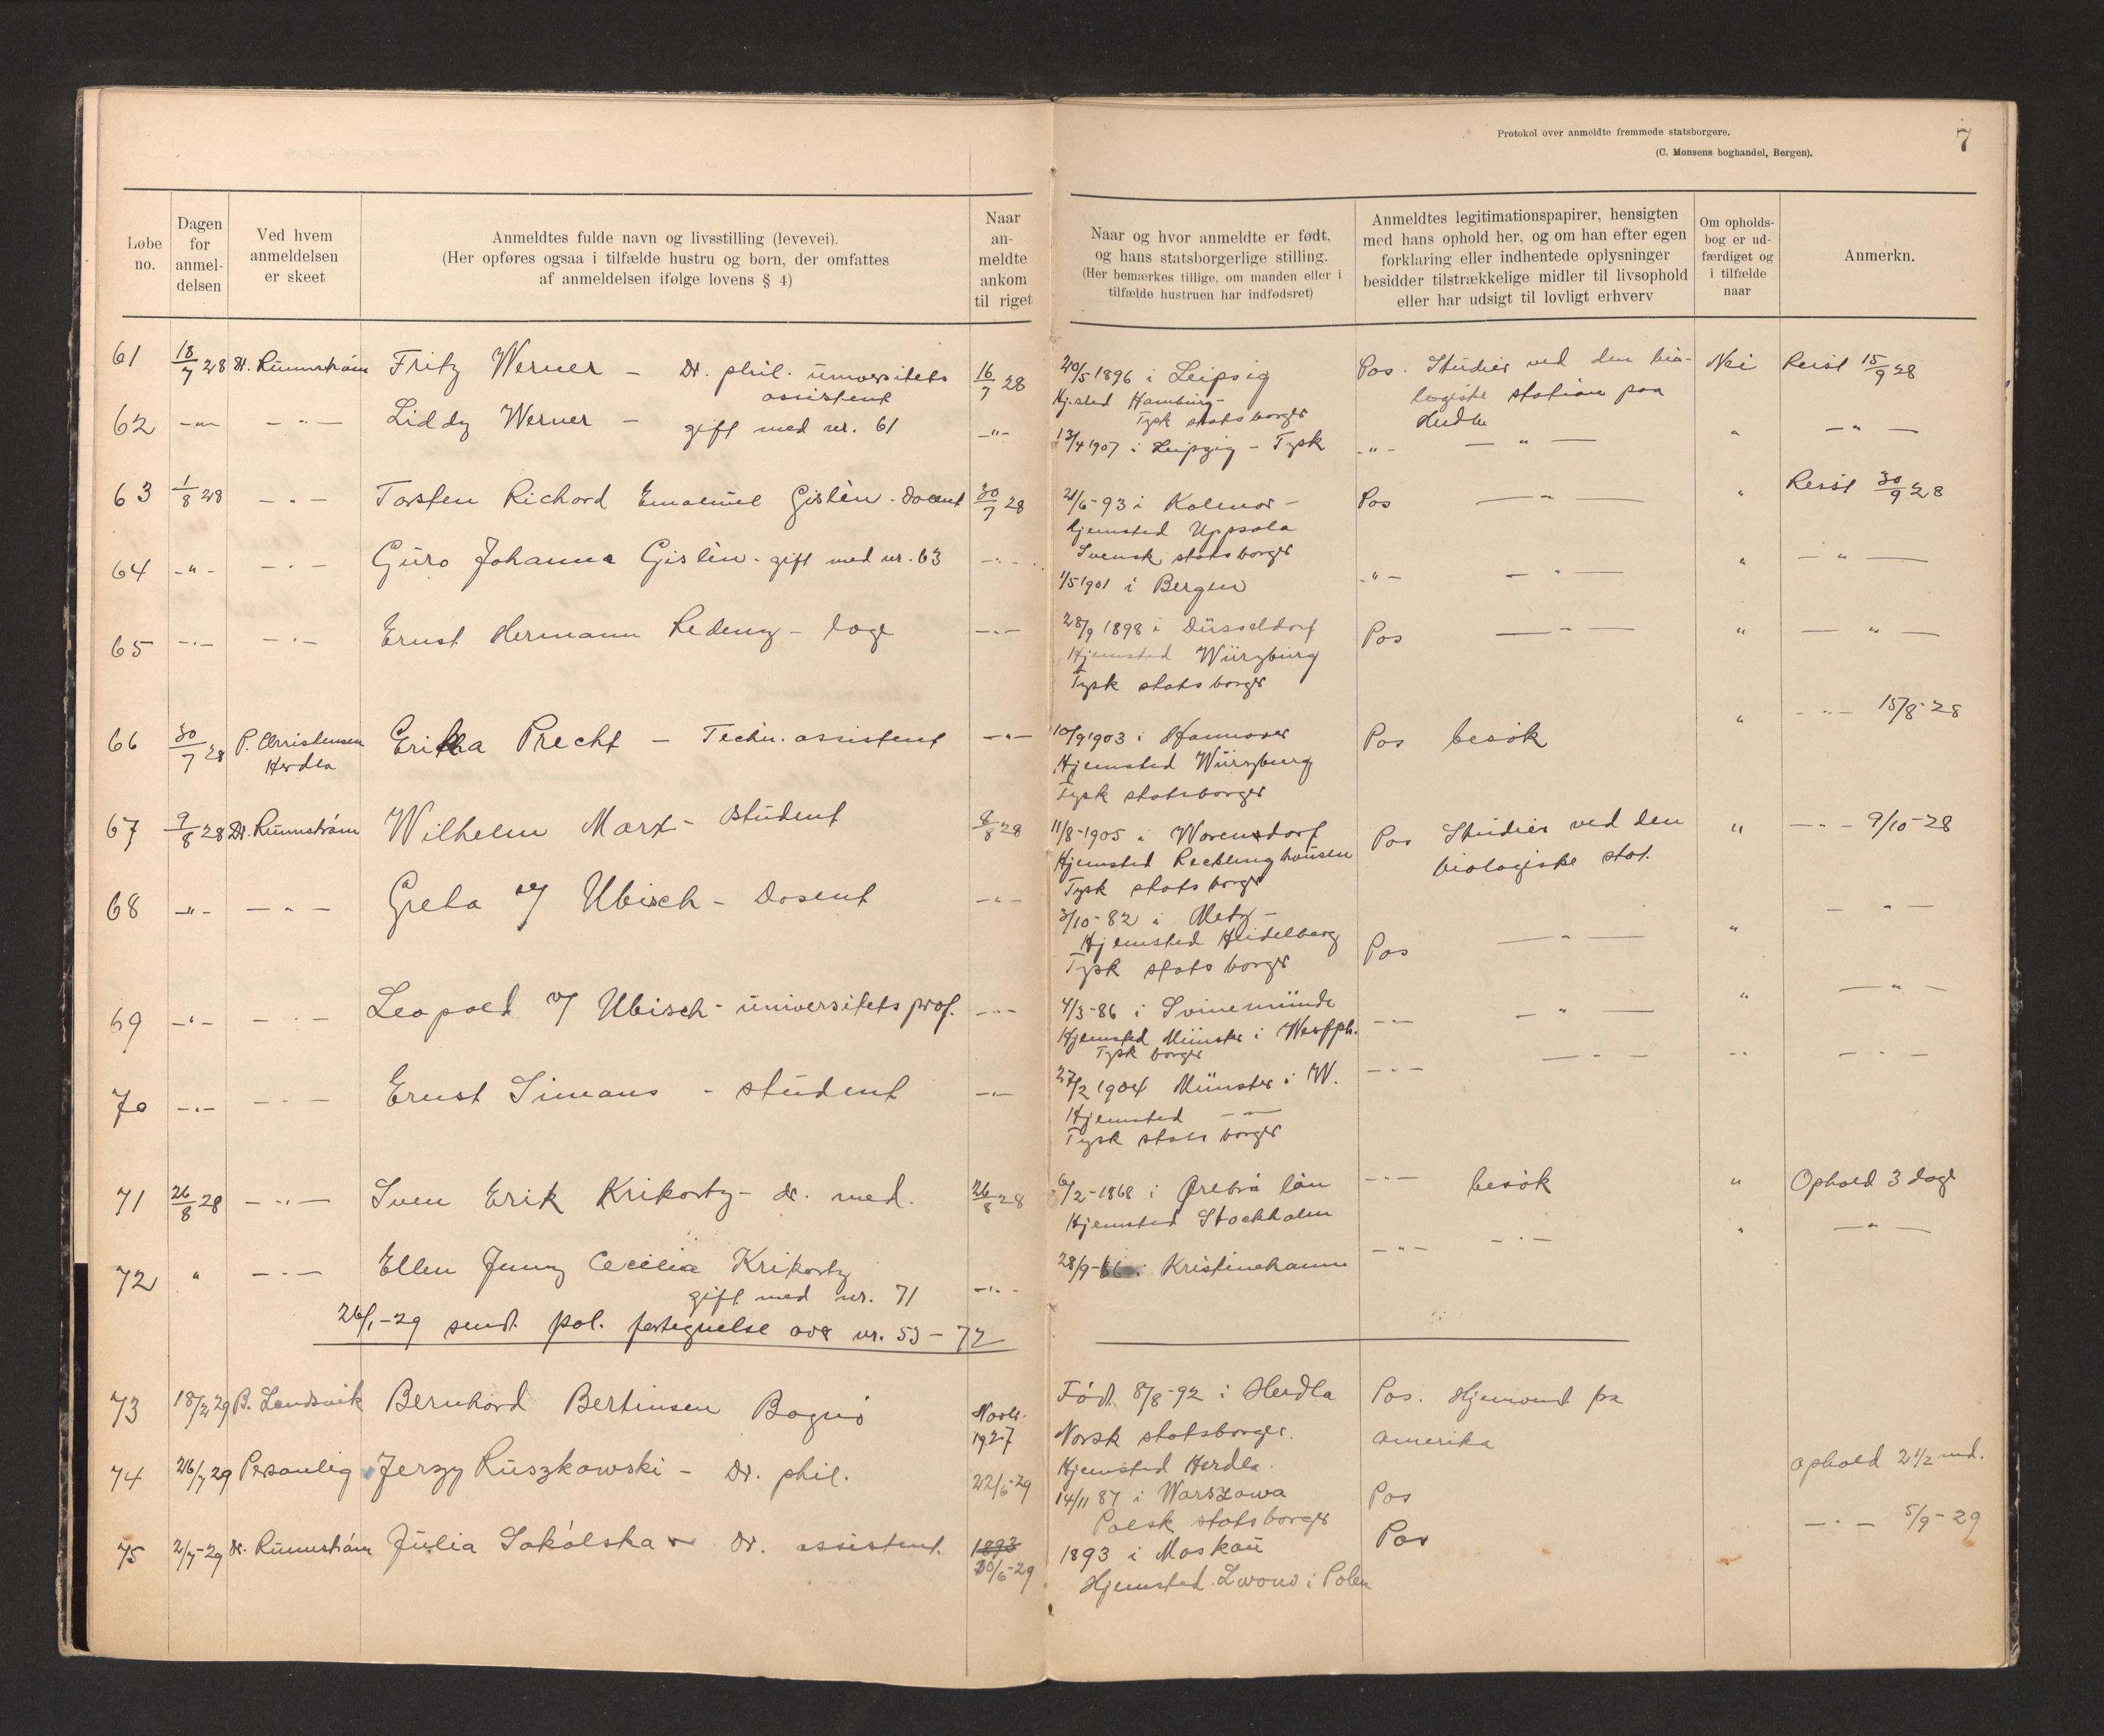 Protokol over anmeldte fremmede statsborgere.
(C. Monsens boghandel, Bergen).
7
Løbe no.
Dagen for anmel-delsen
Ved hvem anmeldelsen er skeet
Anmeldtes fulde navn og livsstilling (levevei).
(Her opføres ogsaa i tilfælde hustru og børn, der omfattes
af anmeldelsen ifølge lovens § 4)
Naar an-meldte ankom til riget
Naar og hvor anmeldte er født,
og hans statsborgerlige stilling.
(Her bemærkes tillige, om manden eller i
tilfælde hustruen har indfødsret)
Anmeldtes legitimationspapirer, hensigten
med hans ophold her, og om han efter egen
forklaring eller indhentede oplysninger
besidder tilstrækkelige midler til livsophold
eller har udsigt til lovligt erhverv
Om opholds-
bog er ud-
færdiget og
i tilfælde
naar
Anmerkn.
61 18/7 28 Dr. Runnström Fritz Werner – Dr. phil. universitets 16/7 28 20/5 1896 i Leipzig Pas. Studier ved den bio- Nei Reist 15/9 28
assistent Hj.sted Hamburg- logiske station paa
Tysk statsborger Herdla
62 –"– – " – Liddy Werner – gift med nr. 61 –"– 13/4 1907 i Leipzig – Tysk –"– – " – " – " –
63 1/8 28 – " – Torsten Richard Emanuel Gislèn - Docent 30/7 28 21/6-93 i Kalmar – Pas – " – " Reist 30/9 28
hjemsted Uppsala
Svensk statsborger
64 –"– – " – Guro Johanne Gislèn - gift med nr. 63 –"– 1/5 1901 i Bergen –"– – " – " – " –
65 –"– – " – Ernst Hermann Redenz – læge –"– 28/9 1898 i Düsseldorf Pas – " – " – " –
Hjemsted Würzburg
Tysk statsborger
66 30/7 28 P. Christensen Erika Precht – Techn. assistent –"– 10/9 1903 i Hannover Pas besøk " –"– 15/8-28
Herdla Hjemsted Würzburg
Tysk statsborger
67 9/8 28 Dr. Runnström Wilhelm Marx – student 8/8 28 11/8-1905 i Warendorf Pas Studier ved den " –"– 9/10-28
Hjemsted Recklinghausen biologiske stat.
Tysk statsborger
68 –"– – " – Greta v/ Ubisch – Dosent –"– 3/10-82 i Metz – Pas – " – " – " –
Hjemsted Heidelberg
Tysk statsborger
69 –"– – " – Leopold v/ Ubisch - universitetsprof. –"– 4/3-86 i Svinemünde –"– – " – " – " –
Hjemsted Münster i Westph.
Tysk borger
70 –"– – " – Ernst Simans – student –"– 27/2 1904 Münster i W. –"– – " – " – " –
Hjemsted –"–
Tysk statsborger
71 26/8 28 – " – Sven Erik Krikortz – dr. med. 26/8 28 6/2-1868 i Ørebrå län –"– besøk " Ophold 3 dage
Hjemsted Stockholm
72 " – " – Ellen Jenny Cecilia Krikortz –"– 28/9-66 i Kristinehamn –"– – " – " – " –
gift med nr. 71
26/1-29 sendt pol. fortegnelse over nr. 53 – 72
73 18/2 29 B. Landsvik Bernhard Bertinsen Bognø Novbr. 1927 Født 8/8-92 i Herdla Pas. Hjemvendt fra
Norsk statsborger. Amerika
Hjemsted Herdla.
74 26/7 29 Personlig Jerzy Ruszkowski – Dr. phil. 22/6-29 14/11 87 i Warszawa Pas Ophold 2 1/2 md.
Polsk statsborger
75 2/7-29 Dr. Runnström Julia Sokólska – Dr. assistent. 1893 1893 i Moskau Pas –"– 5/9-29
30/6-29 Hjemsted Lwow i Polen